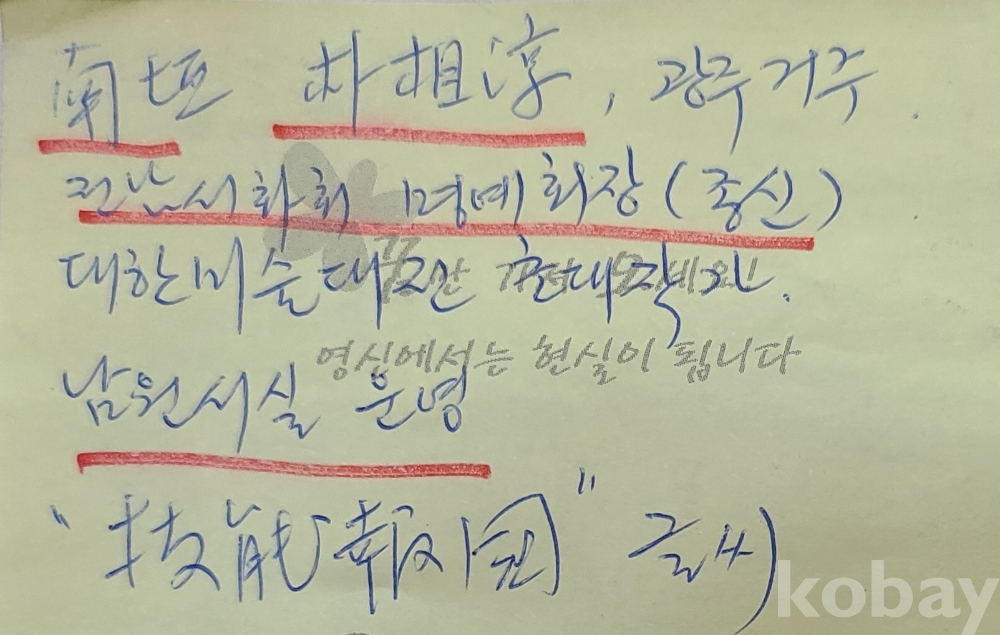 南垣 朴相淳, 광주거주.
전남서화회 명예회장(종신)
대한미술대전 초대작가.
꿈만 가져오세요!
영심에서는 현실이 됩니다
남원서실 운영
"技能報國" 글씨
kobay